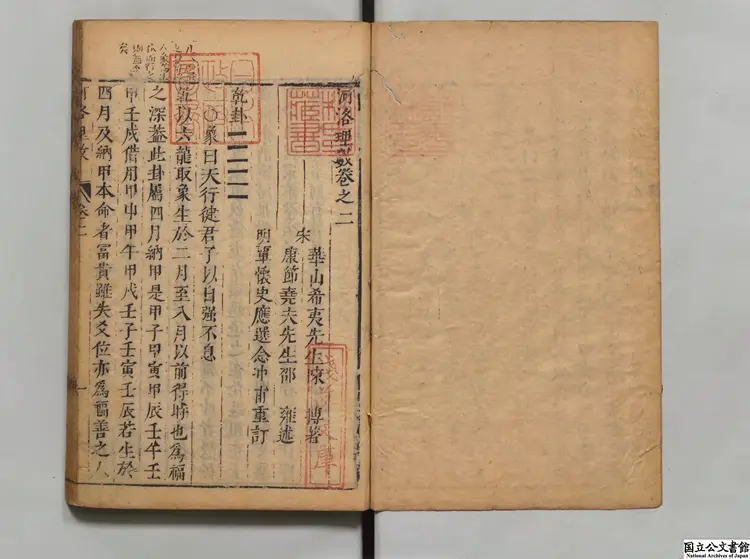 河洛理數卷之二
宋 華山希夷先生陳 摶著
康節堯夫先生邵 雍述
明 覃懷史應選念冲甫重訂
乾卦
象曰天行徤君子以自强不息
乾以六龍取象生於二月至八月以前得時也為福
之深葢此卦屬四月納甲是甲子甲寅甲辰壬午壬
申壬戌借用甲申甲午甲戌壬子壬寅壬辰若生於
四月及納甲本命者富貴雖失爻位亦為福善之人
河洛理數 卷二 一
國立公文書館
National Archives of Japan